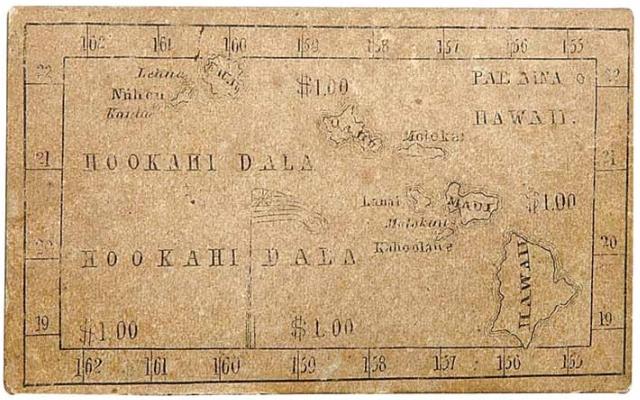 162 161 160 159 158 157 156 155
22 Lehua $1.00 PAE AINA o 22
Niihau HAWAII.
Molokai
21 HOOKAHI DALA 21
Lanai MAUI $1.00
Molokini
20 HOOKAHI DALA Kahoolawe 20
HAWAII
19 $1.00 $1.00 19
162 161 160 159 158 157 156 155